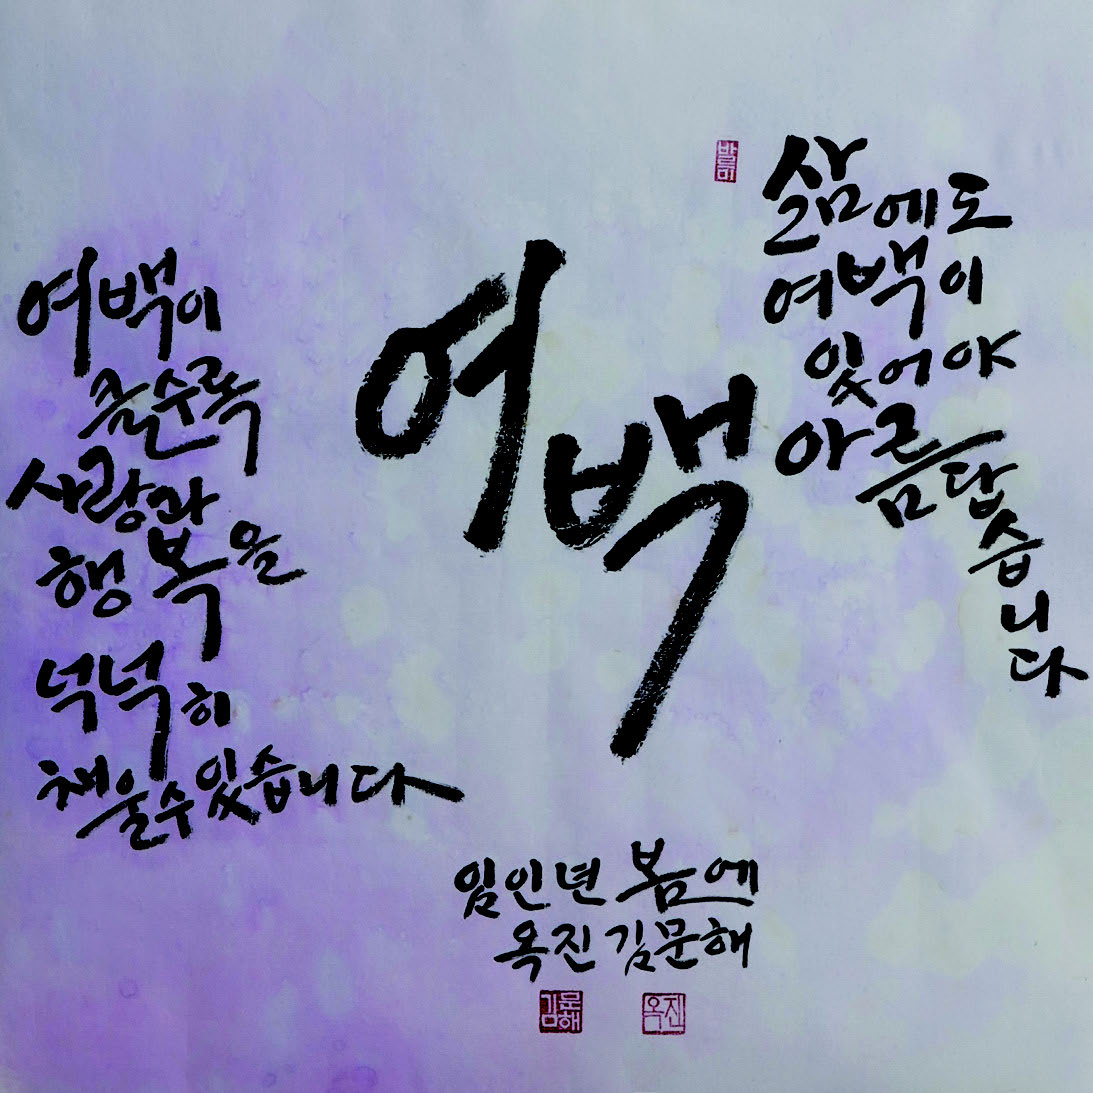 삶에도
여백이
있어야
아름답
습
니
다
여백
여백이
클수록
사랑과
행복을
넉넉히
채울수있습니다
임인년 봄에
옥진 김문해
김문해
옥진